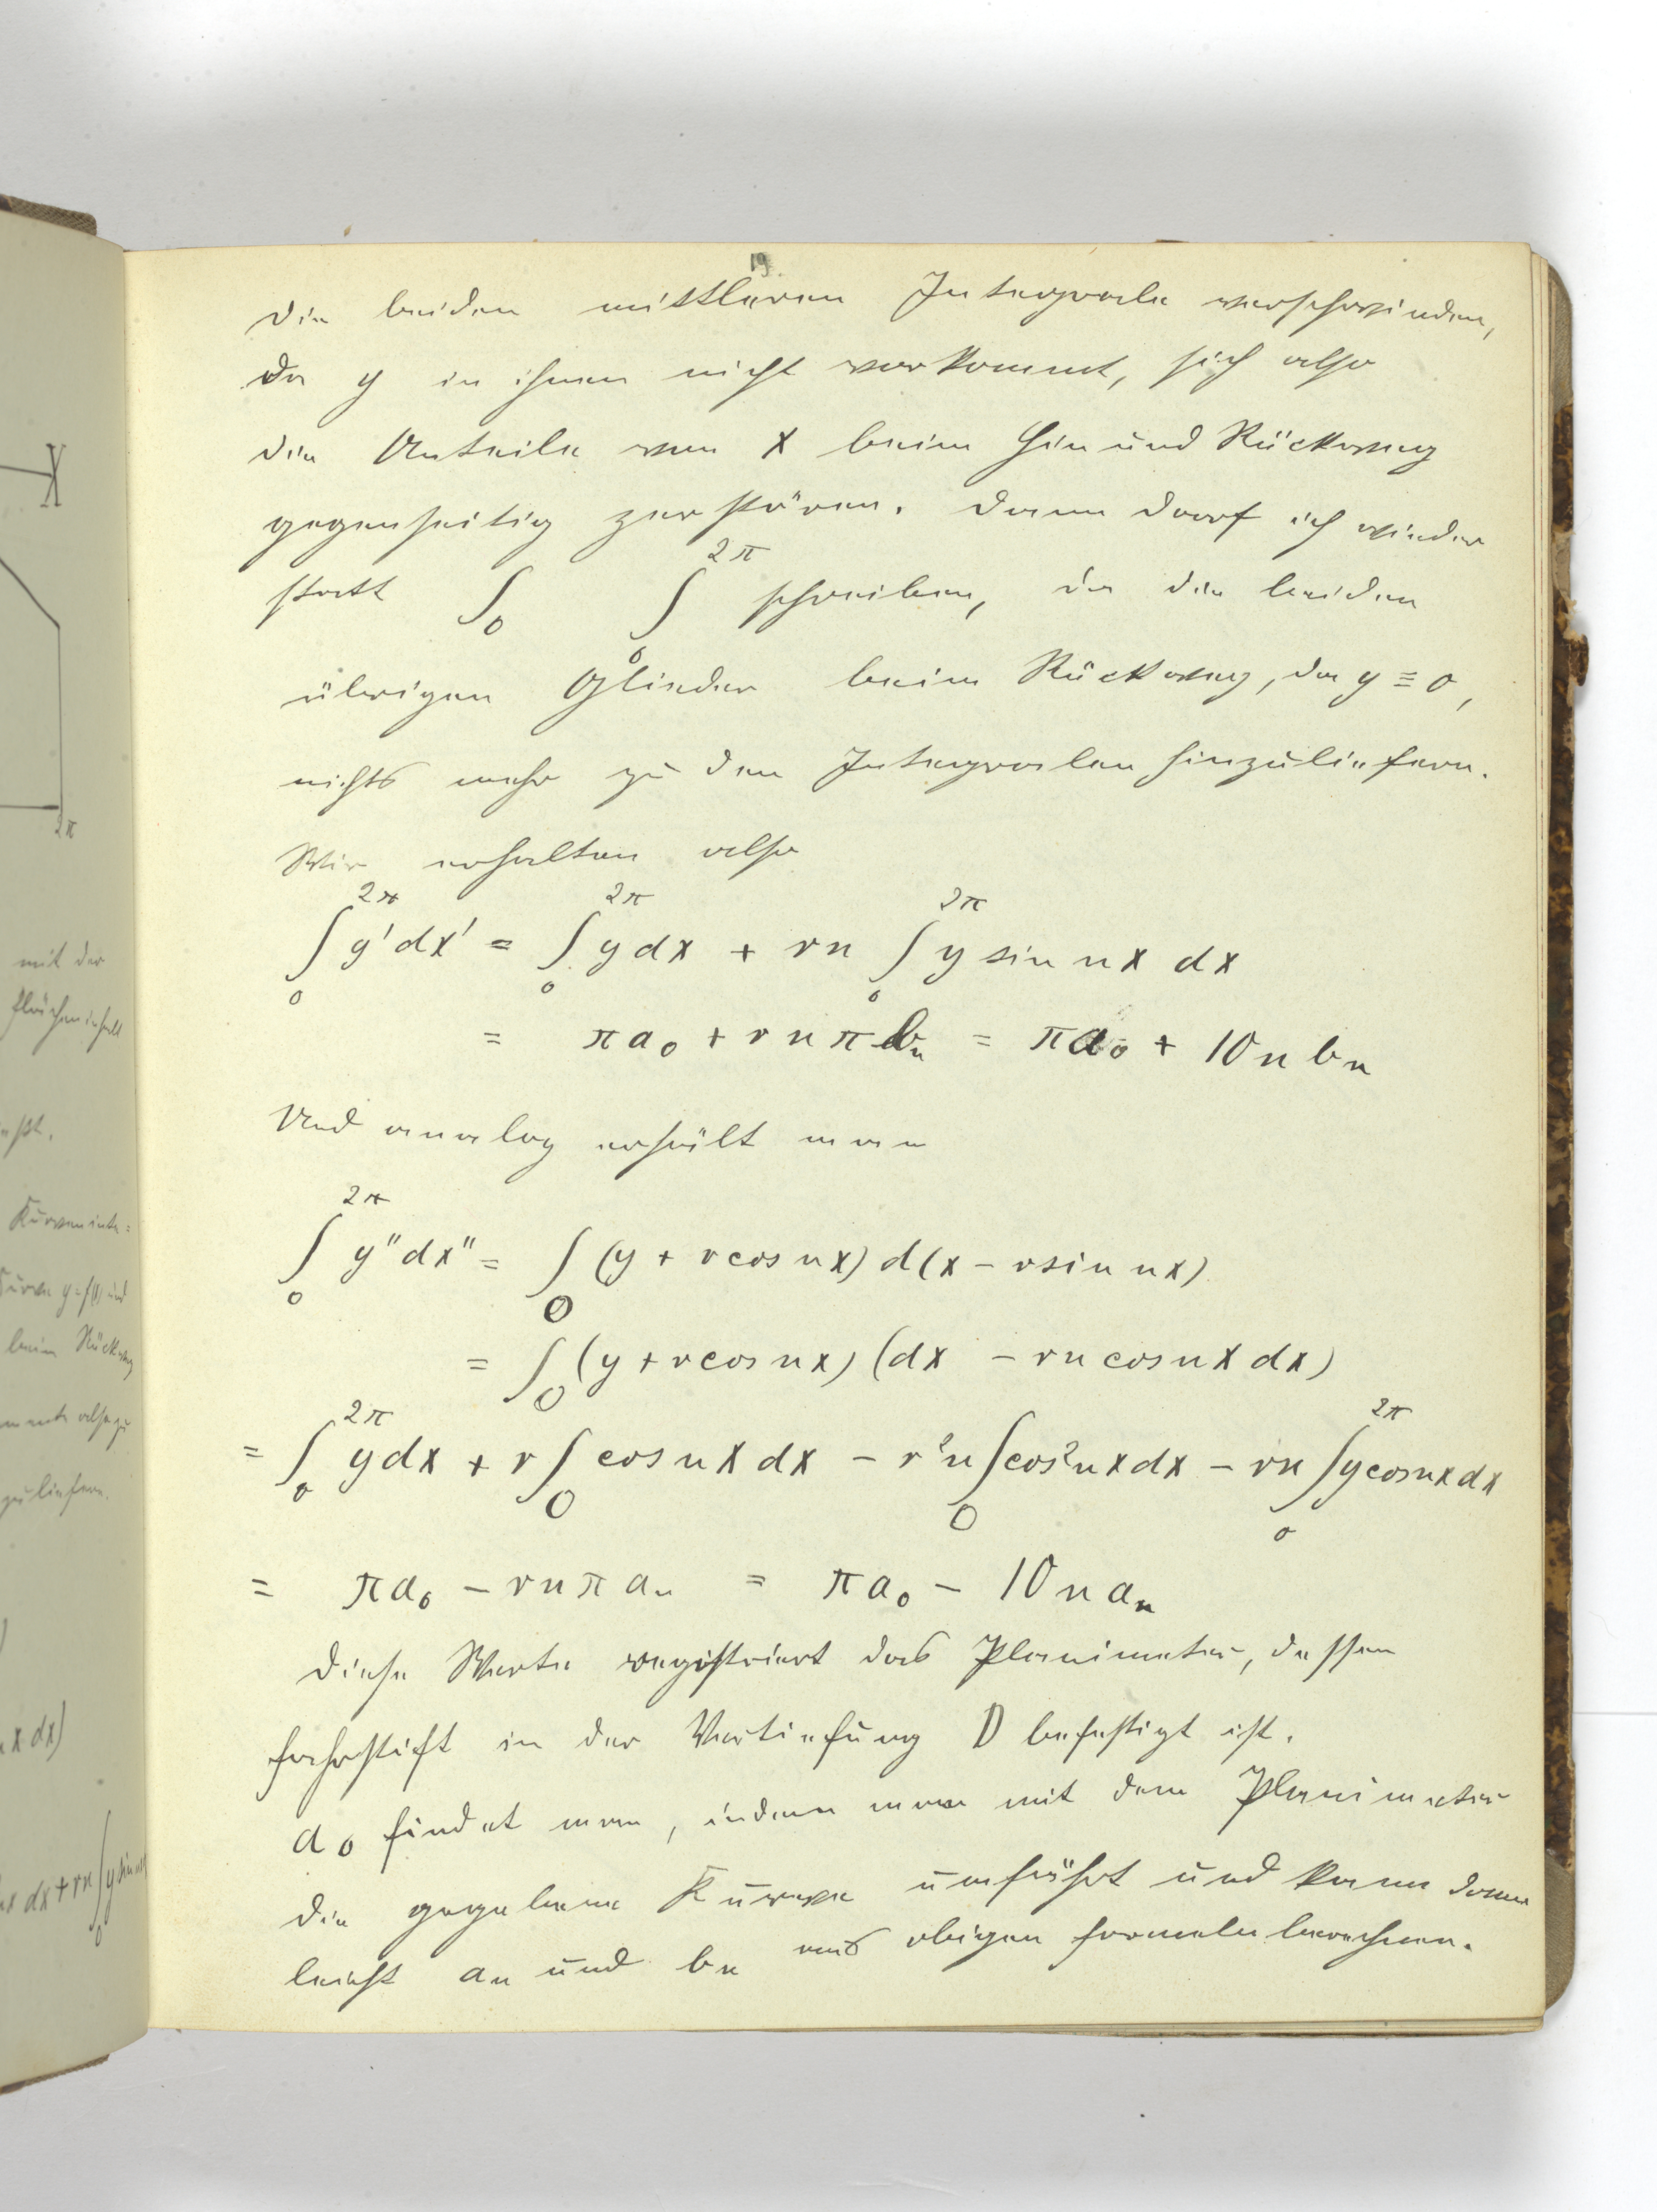 19.
Die beiden mittleren Integrale verschwinden,
da y in ihnen nicht vorkommt, sich also
die Anteile von x beim Hin und Rückweg
gegenseitig zerstören. Dann darf ich wieder
statt ∫₀ ∫₀^2π schreiben, da die beiden
übrigen Glieder beim Rückweg, da y ≡ 0,
nichts mehr zu den Integralen hinzuliefern.
Wir erhalten also
∫₀^2π y'dx' = ∫₀^2π y dx + rn ∫₀^2π y sin nx dx
= πa₀ + rnπbₙ = πa₀ + 10n bₙ
Und analog erhält man
∫₀^2π y"dx" = ∫₀ (y + r cos nx) d(x − r sin nx)
= ∫₀ (y + r cos nx) (dx − rn cos nx dx)
= ∫₀^2π y dx + r∫₀ cos nx dx − r²n ∫₀ cos² nx dx − rn ∫₀^2π y cos nx dx
= πa₀ − rnπaₙ = πa₀ − 10n aₙ
Diese Werte registriert das Planimeter, dessen
Fahrstift in der Vertiefung D befestigt ist.
a₀ findet man, indem man mit dem Planimeter
die gegebene Kurve umfährt und kann dann
leicht aₙ und bₙ aus obigen Formeln berechnen.
X
2π
mit der
Flächeninhalt
Kurveninte=
beim Rückweg
x dx)
dx + rn ∫₀ y sin